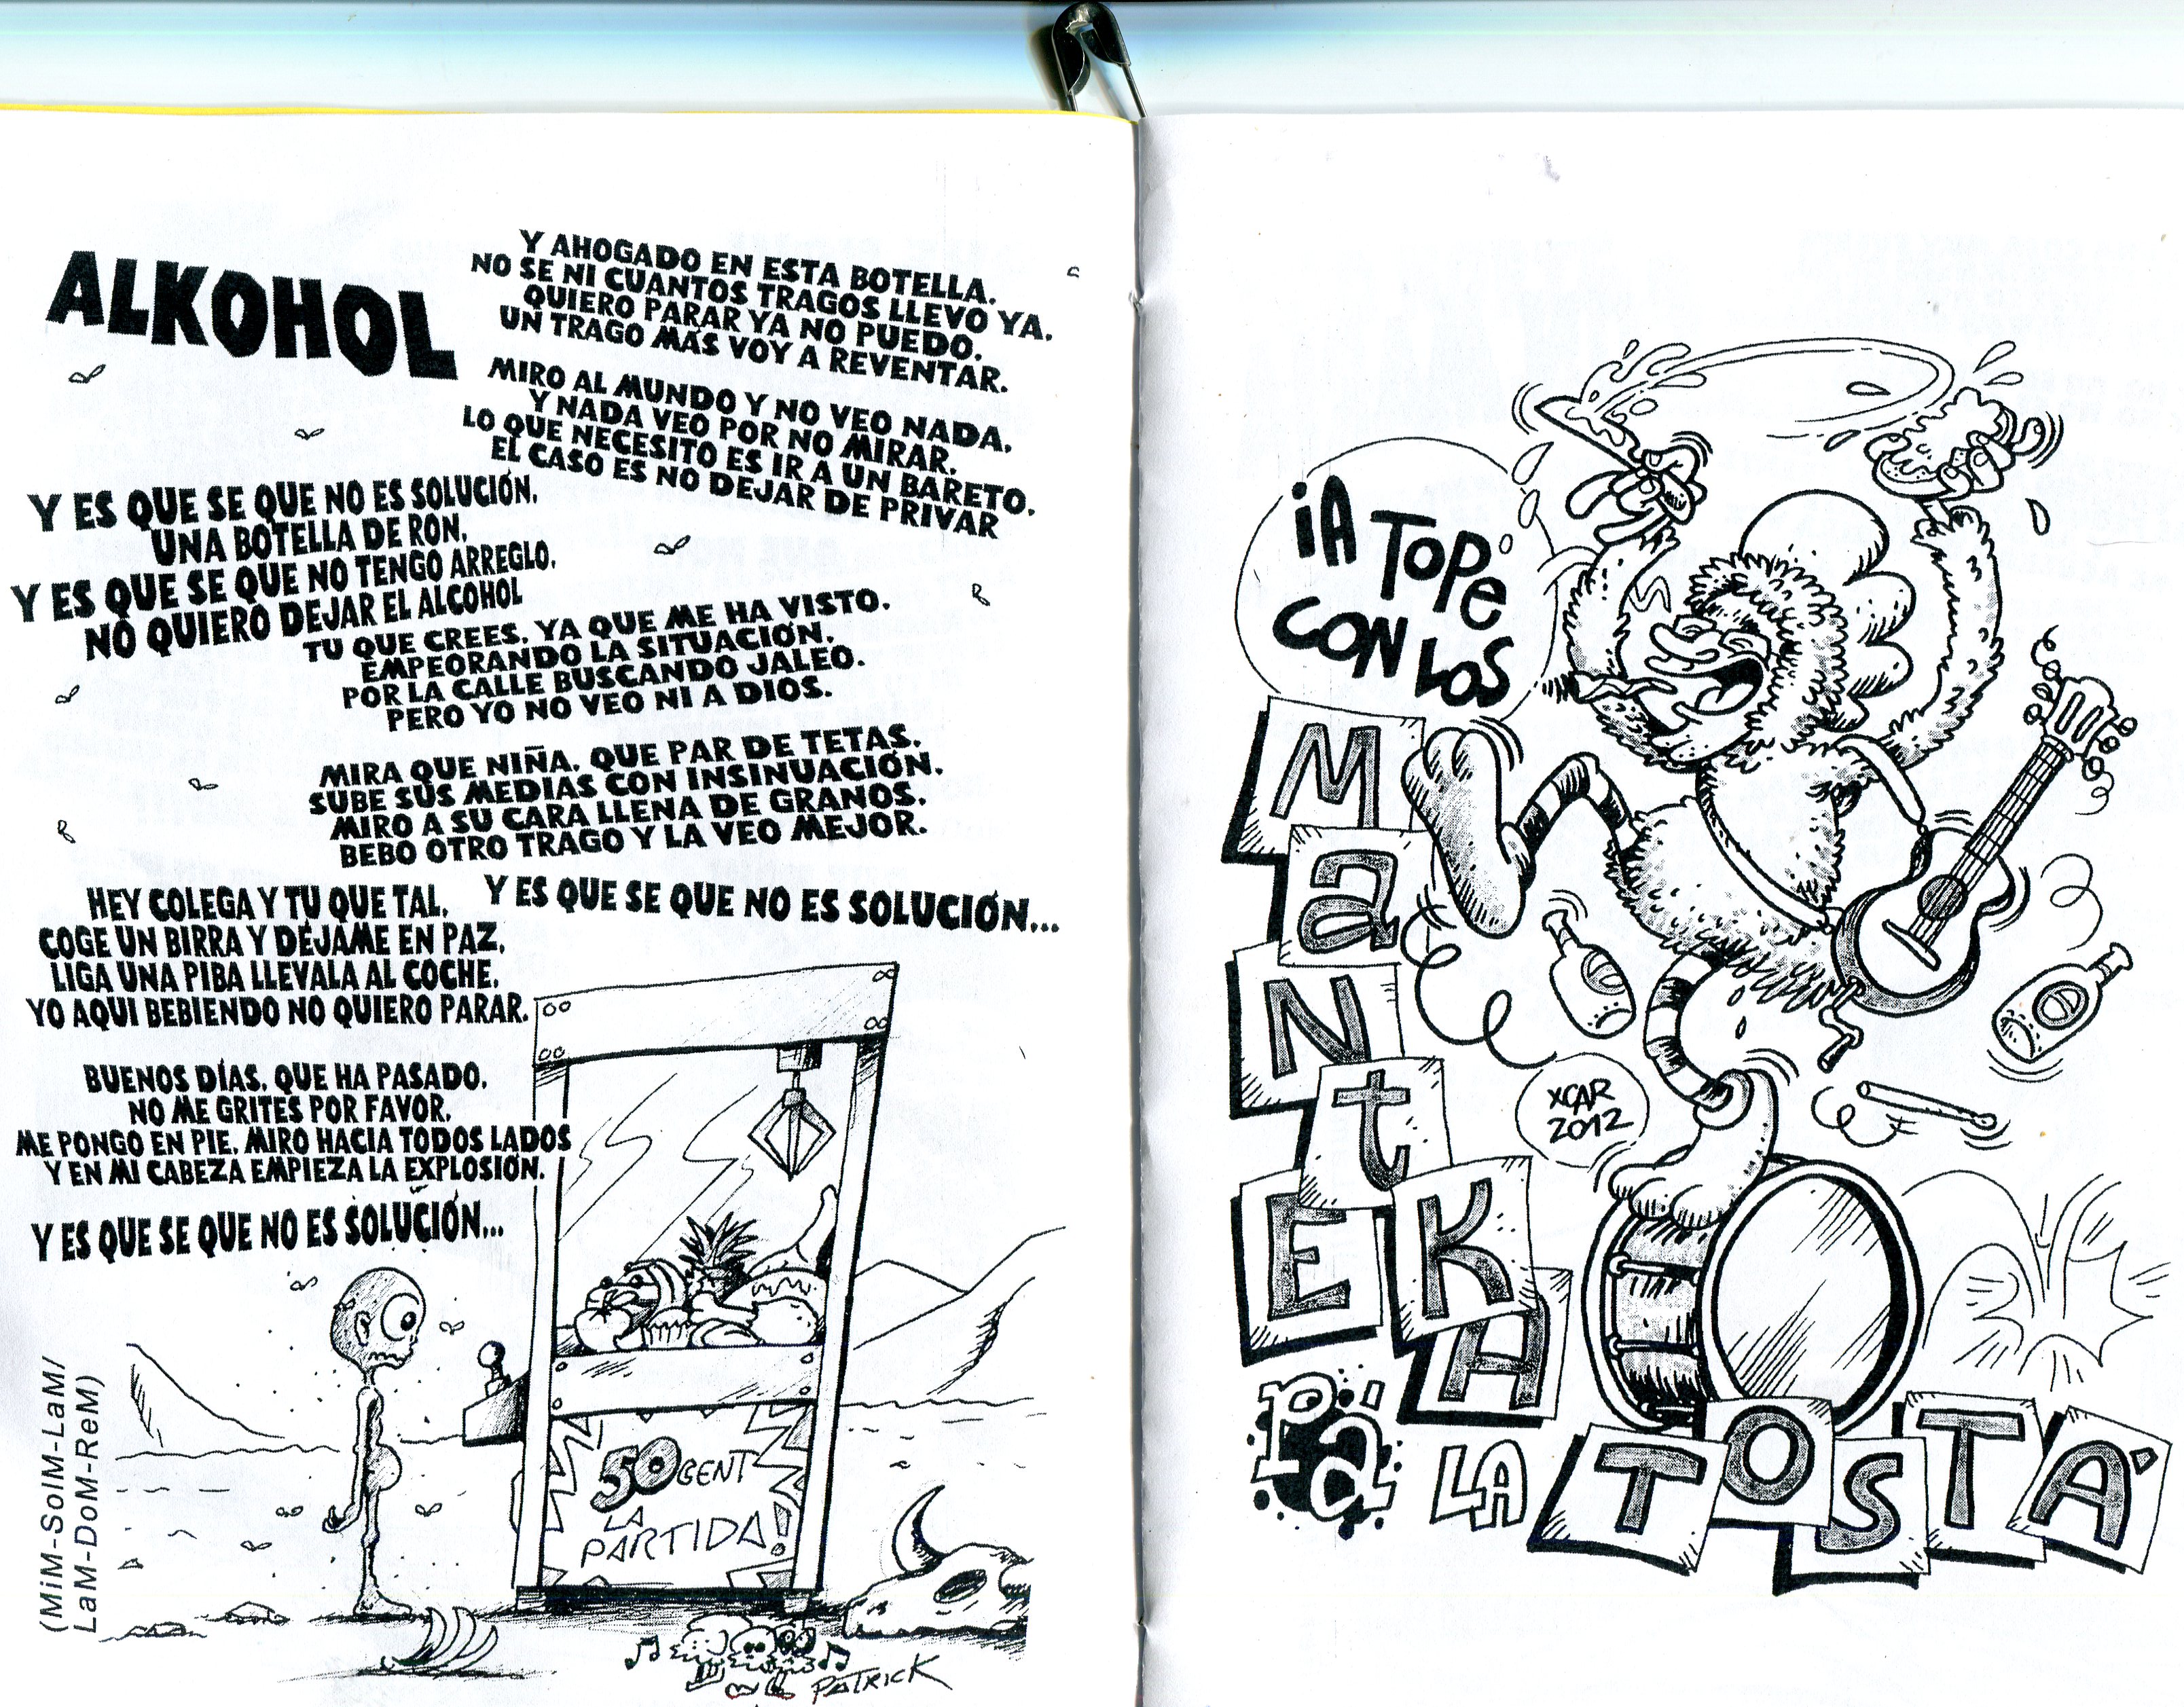 ALKOHOL
Y AHOGADO EN ESTA BOTELLA.
NO SE NI CUANTOS TRAGOS LLEVO YA.
QUIERO PARAR YA NO PUEDO.
UN TRAGO MÁS VOY A REVENTAR.
MIRO AL MUNDO Y NO VEO NADA.
Y NADA VEO POR NO MIRAR.
LO QUE NECESITO ES IR A UN BARETO.
EL CASO ES NO DEJAR DE PRIVAR
Y ES QUE SE QUE NO ES SOLUCIÓN.
UNA BOTELLA DE RON.
Y ES QUE SE QUE NO TENGO ARREGLO.
NO QUIERO DEJAR EL ALCOHOL
TU QUE CREES. YA QUE ME HA VISTO.
EMPEORANDO LA SITUACIÓN.
POR LA CALLE BUSCANDO JALEO.
PERO YO NO VEO NI A DIOS.
MIRA QUE NIÑA. QUE PAR DE TETAS.
SUBE SUS MEDIAS CON INSINUACIÓN.
MIRO A SU CARA LLENA DE GRANOS.
BEBO OTRO TRAGO Y LA VEO MEJOR.
Y ES QUE SE QUE NO ES SOLUCIÓN...
HEY COLEGA Y TÚ QUE TAL.
COGE UN BIRRA Y DÉJAME EN PAZ.
LIGA UNA PIBA LLEVALA AL COCHE.
YO AQUI BEBIENDO NO QUIERO PARAR.
BUENOS DÍAS. QUE HA PASADO.
NO ME GRITES POR FAVOR.
ME PONGO EN PIE. MIRO HACIA TODOS LADOS
Y EN MI CABEZA EMPIEZA LA EXPLOSIÓN.
Y ES QUE SE QUE NO ES SOLUCIÓN...
(MiM-SolM-LaM/
LaM-DoM-ReM)
50 CENT
LA
PARTIDA!
PATRICK
¡A TOPE
CON LOS
MaNtEKA
PÁ LA TOSTÁ
XCAR
2012